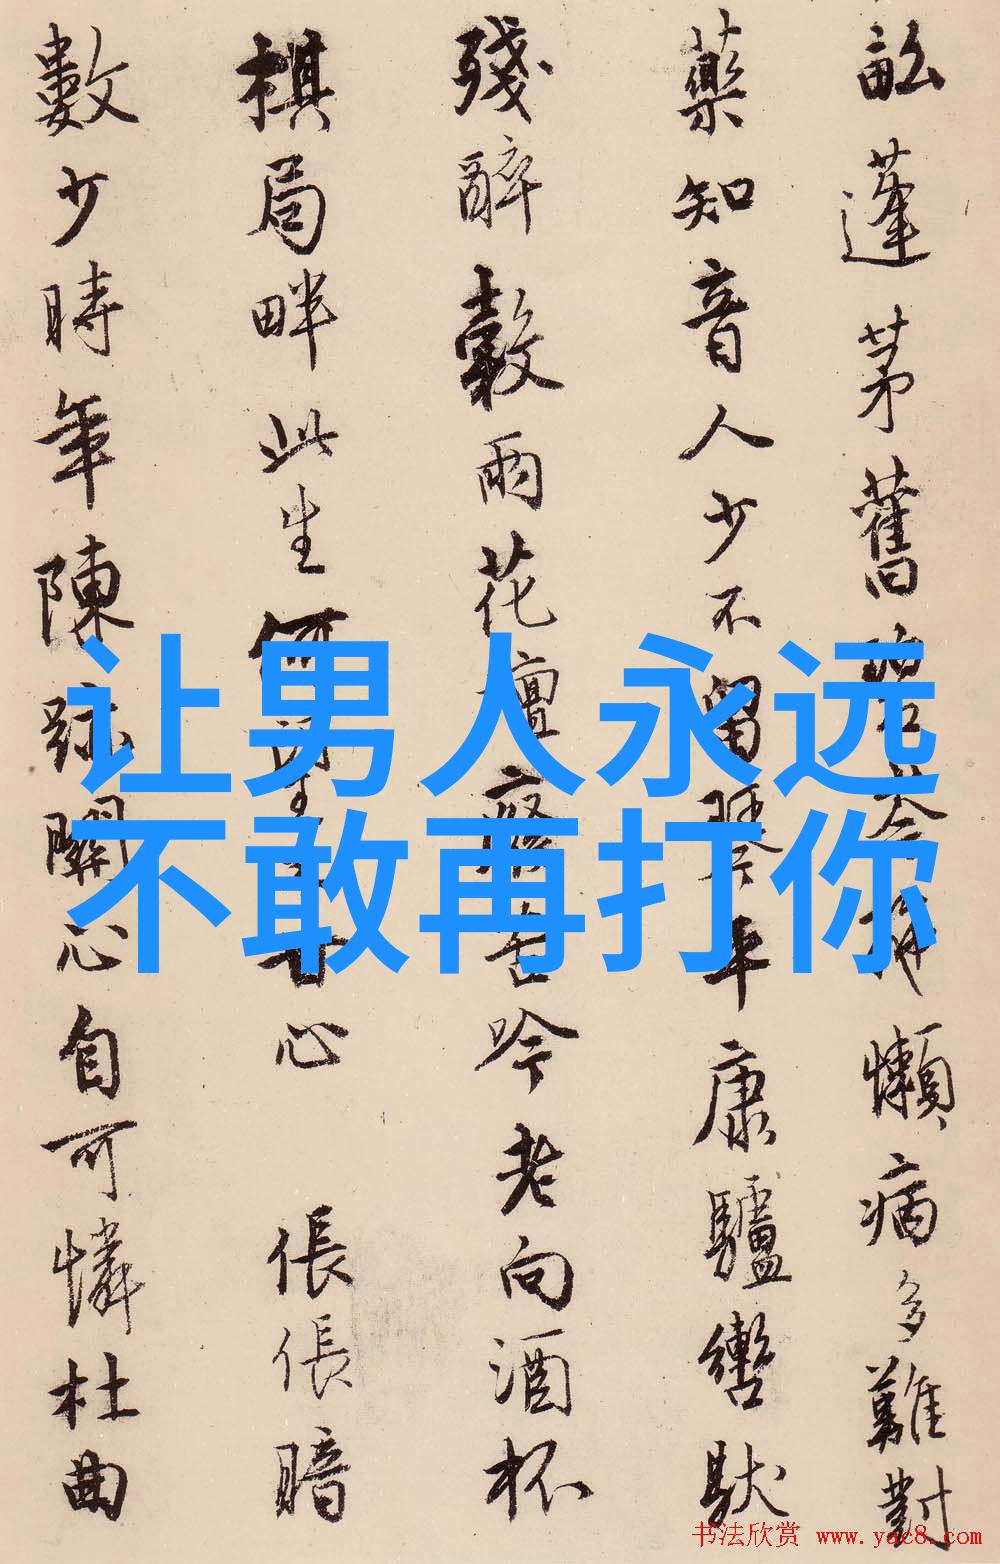 畝蓬茅舊 懶病多難對
藥知音人少不留琴平康驢轡馱
殘醉穀雨花壇 吟老向酒杯
棋局畔此生何 生 心 倀倀暗
數少時年陳跡關心自可憐杜曲
让男人永远
不敢再打你
书法欣赏 www.yac8.com